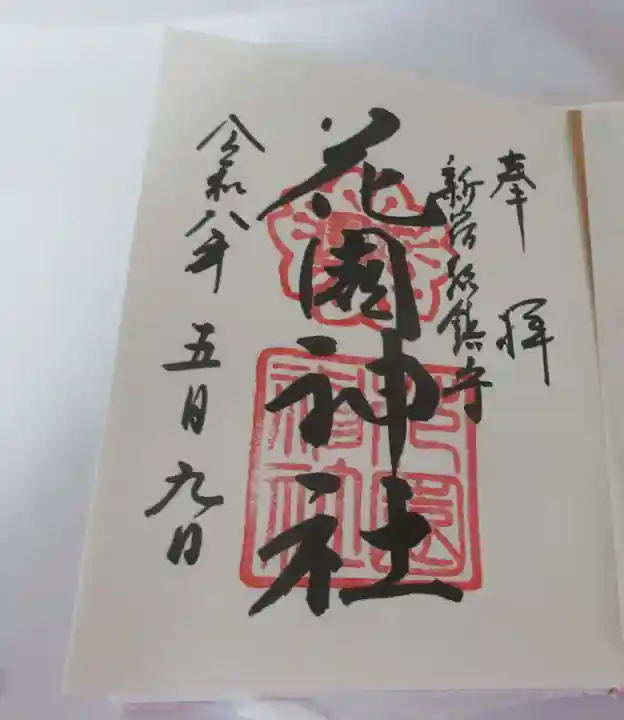 奉拝
新宿総鎮守
花園神社
令和八年五月九日
花園
神社